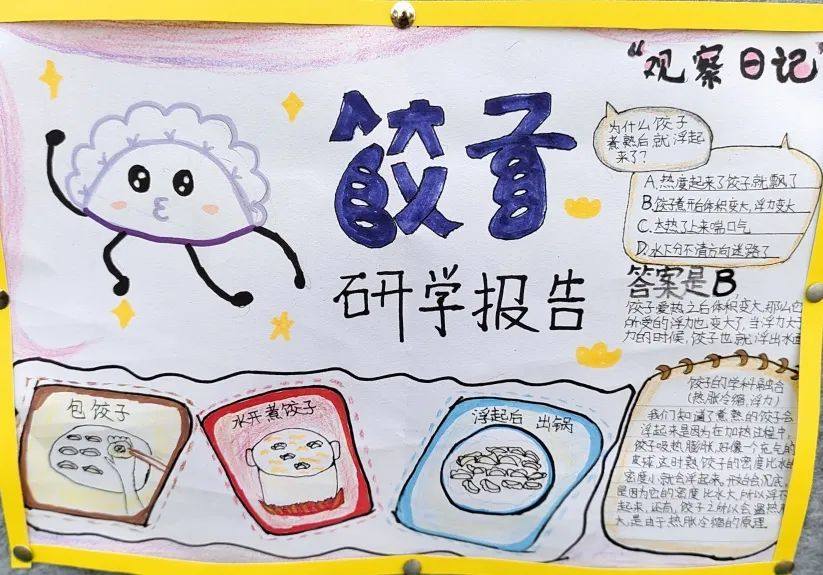 “观察日记”
饺子
研学报告
为什么饺子
煮熟后就浮起
来了?
A.热度起来了饺子就飘了
B.饺子煮开后体积变大,浮力变大
C.太热了上来喘口气
D.水下分不清方向迷路了
答案是B
饺子受热之后体积变大,那么它
所受的浮力也变大了,当浮力大于
力的时候,饺子也就浮出水面
包饺子
水开煮饺子
浮起后 出锅
饺子的学科融合
(热胀冷缩,浮力)
我们知道了煮熟的饺子会
浮起来是因为在加热过程中,
饺子吸热膨胀,好像一个充气的
气球,这时熟饺子的密度比水的
密度小就会浮起来,开始会沉底
是因为它的密度比水大,所以浮不
起来,还有,饺子之所以会遇热
大,是由于热胀冷缩的原理